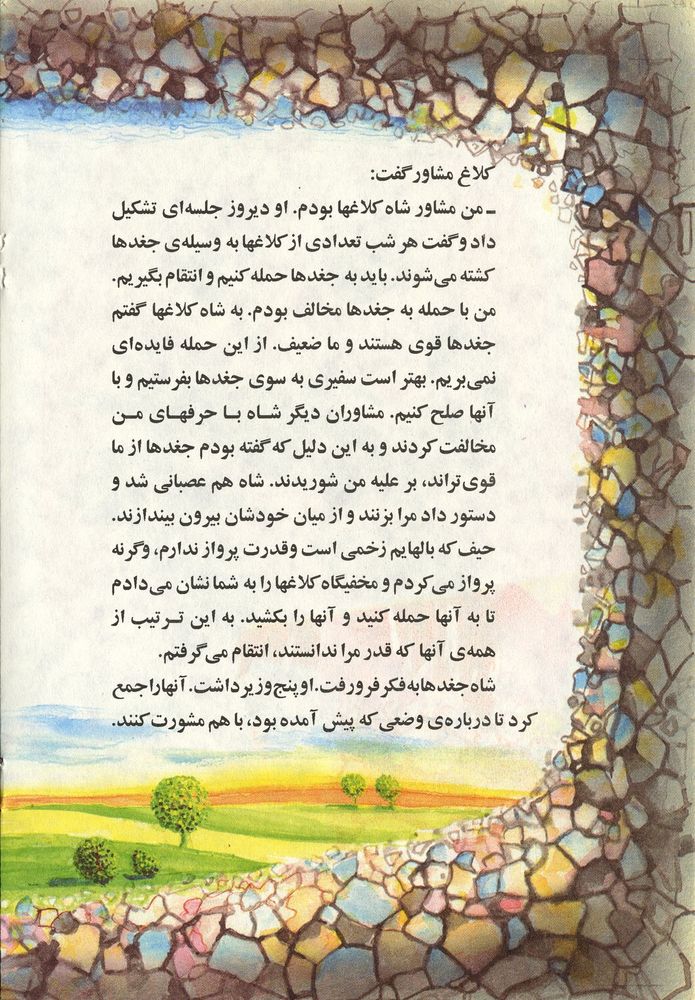 کلاغ مشاور گفت:
ـ من مشاور شاه کلاغها بودم. او دیروز جلسه‌ای تشکیل
داد و گفت هر شب تعدادی از کلاغها به وسیله‌ی جغدها
کشته می‌شوند. باید به جغدها حمله کنیم و انتقام بگیریم.
من با حمله به جغدها مخالف بودم. به شاه کلاغها گفتم
جغدها قوی هستند و ما ضعیف. از این حمله فایده‌ای
نمی‌بریم. بهتر است سفیری به سوی جغدها بفرستیم و با
آنها صلح کنیم. مشاوران دیگر شاه با حرفهای من
مخالفت کردند و به این دلیل که گفته بودم جغدها از ما
قوی‌تراند، بر علیه من شوریدند. شاه هم عصبانی شد و
دستور داد مرا بزنند و از میان خودشان بیرون بیندازند.
حیف که بالهایم زخمی است و قدرت پرواز ندارم، وگرنه
پرواز می‌کردم و مخفیگاه کلاغها را به شما نشان می‌دادم
تا به آنها حمله کنید و آنها را بکشید. به این ترتیب از
همه‌ی آنها که قدر مرا ندانستند، انتقام می‌گرفتم.
شاه جغدها به فکر فرو رفت. او پنج وزیر داشت. آنها را جمع
کرد تا درباره‌ی وضعی که پیش آمده بود، با هم مشورت کنند.